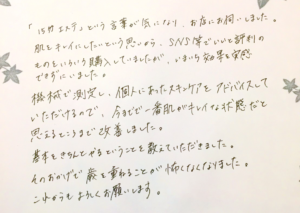 「活力エステ」という言葉が気になり、お店にお伺いしました。
肌をキレイにしたいという思いから、SNS等でいいと評判の
ものをいろいろ購入していましたが、いまいち効果を実感
できずにいました。
機械で測定し、個人にあったスキンケアをアドバイスして
いただけるので、今までで一番肌がキレイな状態だと
思えるところまで改善しました。
基本をきちんとやるということを教えていただきました。
そのおかげで歳を重ねることが怖くなくなりました。
これからもよろしくお願いします。